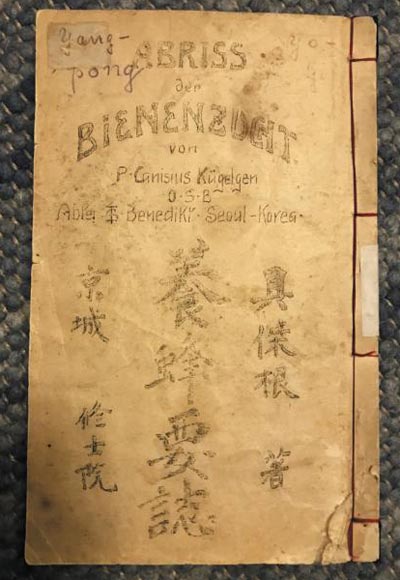 Yang-
pong
Yo-
ABRISS
der
BIENENZUCHT
von
P. Canisius Kügelgen
O·S·B
Abtei St. Benedikt·Seoul-Korea·
具傑根 著
養蜂要誌
京城 修士院